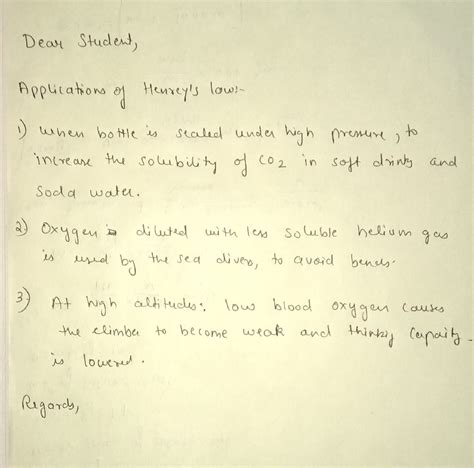 Dear Student,
Applications of Henrey's low:-
1) when bottle is sealed under high pressure, to
increase the solubility of CO2 in soft drinks and
Soda water.
2) Oxygen is diluted with less soluble helium gas
is used by the sea divers, to avoid bends.
3) At high altitudes: low blood oxygen causes
the climber to become weak and thinking capacity
is lowered.
Regards,